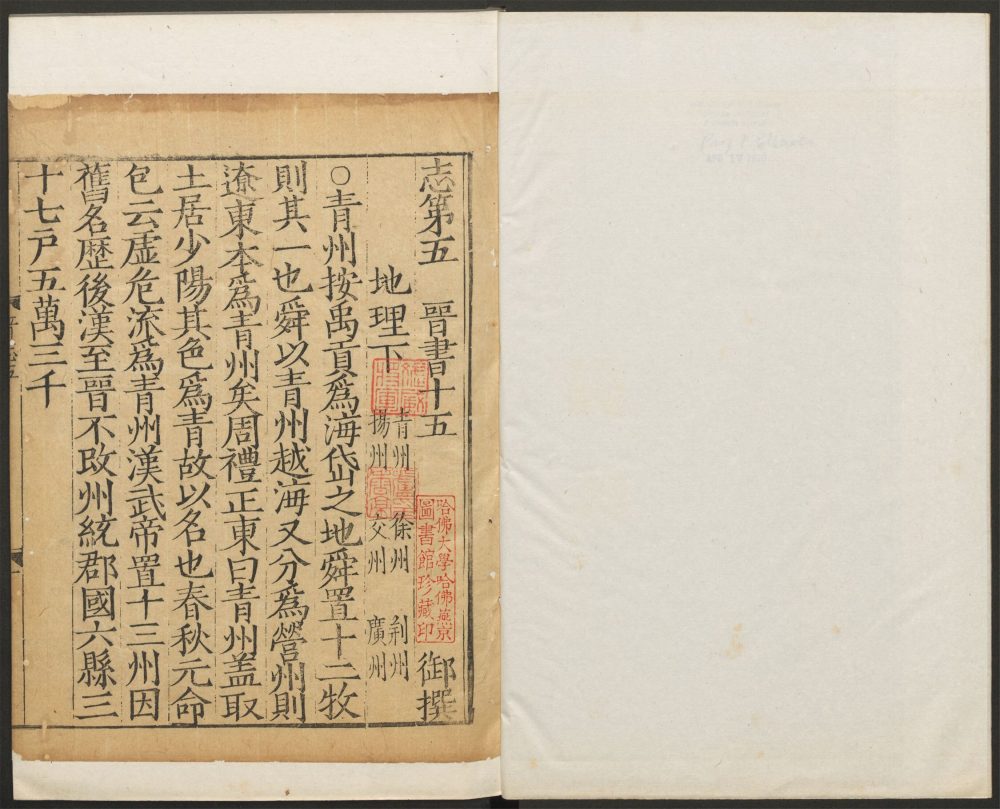 志第五 晉書十五 御撰
地理下 青州 徐州 荆州
揚州 交州 廣州
哈佛大學哈佛燕京
圖書館珍藏印
○青州按禹貢爲海岱之地舜置十二牧
則其一也舜以青州越海又分爲營州則
遼東本爲青州矣周禮正東曰青州盖取
土居少陽其色爲青故以名也春秋元命
包云虛危流爲青州漢武帝置十三州因
舊名歷後漢至晉不改州統郡國六縣三
十七戸五萬三千